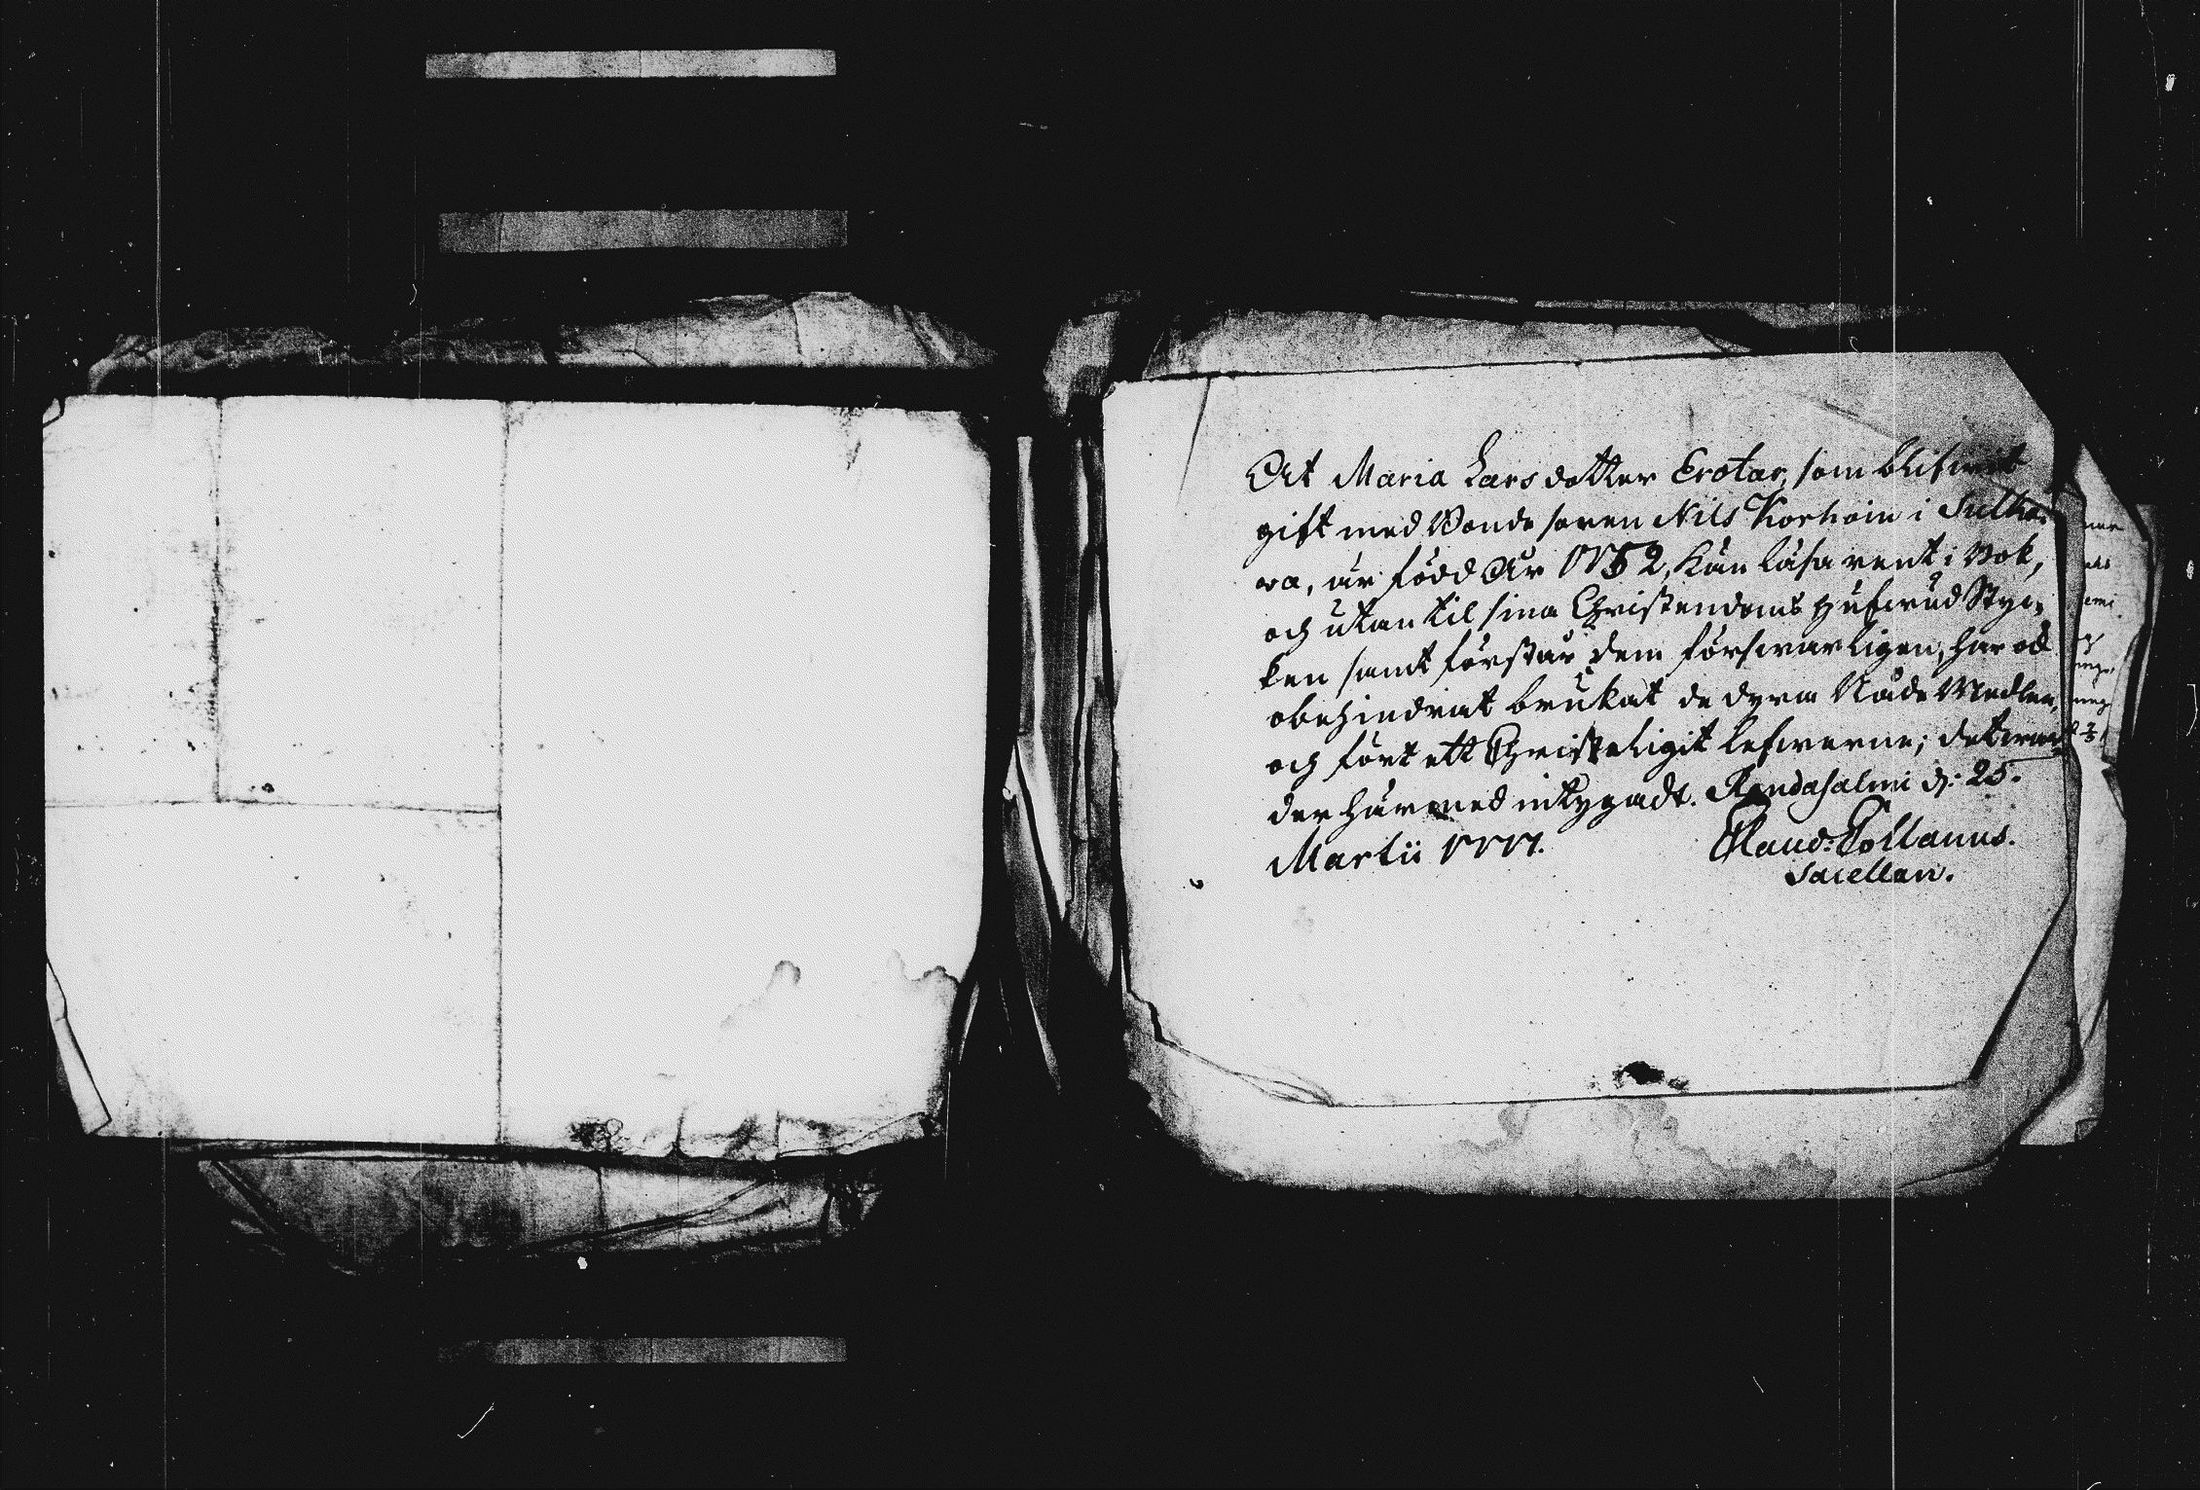 At Maria Larsdotter Erotar, som blifwit
gift med Bonde sonen Nils Korhoin i Sulka-
wa, är född År 1752, kan läsa rent i Bok,
och utan til sina Christendoms hufwud Styc-
ken samt förstår dem förswarligen, har ock
obehindrat brukat de dyra Nåde Medlen,
och fört ett Christeligit lefwerne; det war-
der härmed intygadt. Randasalmi d: 25.
Martii 1777.
Claud: Collanus.
Sacellan.